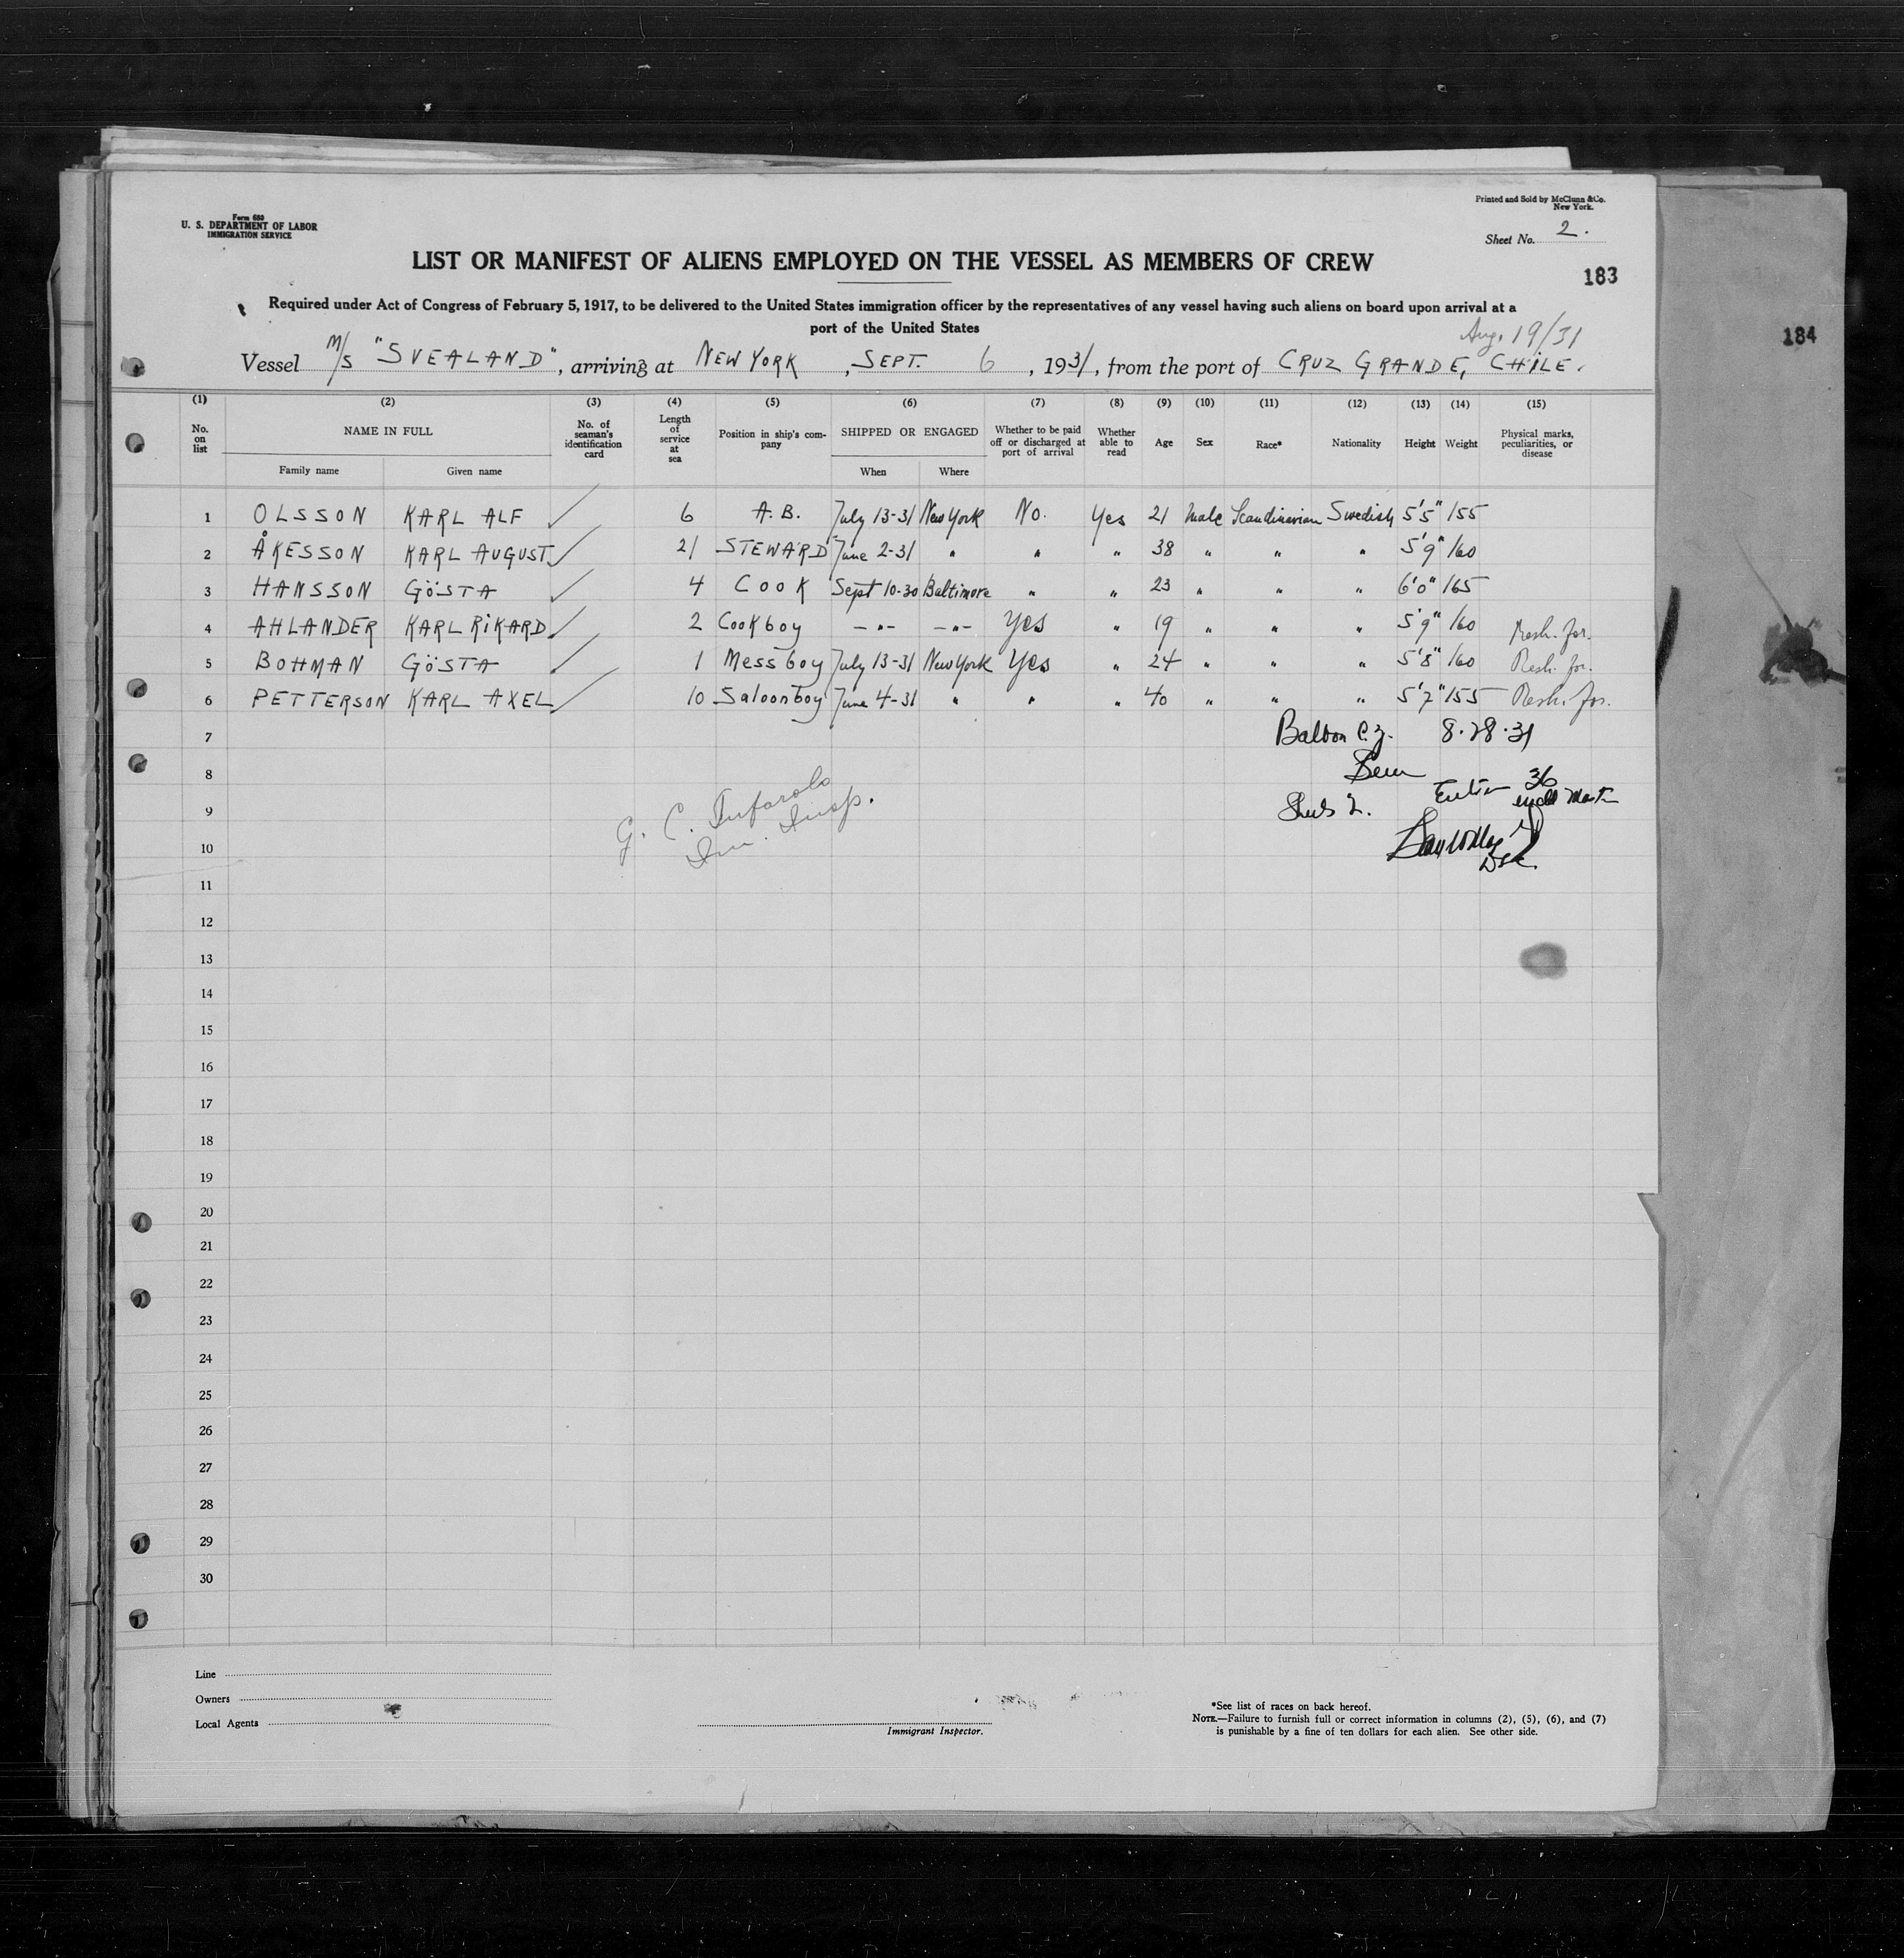 Form 680
U. S. DEPARTMENT OF LABOR
IMMIGRATION SERVICE
Printed and Sold by McClunn & Co.
New York.
Sheet No. 2.
LIST OR MANIFEST OF ALIENS EMPLOYED ON THE VESSEL AS MEMBERS OF CREW
183
184
Required under Act of Congress of February 5, 1917, to be delivered to the United States immigration officer by the representatives of any vessel having such aliens on board upon arrival at a
port of the United States
Aug. 19/31
Vessel M/S "SVEALAND", arriving at NEW YORK, SEPT. 6, 1931, from the port of CRUZ GRANDE, CHILE.
(1) (2) (3) (4) (5) (6) (7) (8) (9) (10) (11) (12) (13) (14) (15)
No. on list NAME IN FULL Family name Given name No. of seaman's identification card Length of service at sea Position in ship's company SHIPPED OR ENGAGED When Where Whether to be paid off or discharged at port of arrival Whether able to read Age Sex Race* Nationality Height Weight Physical marks, peculiarities, or disease
1 OLSSON KARL ALF 6 A.B. July 13-31 New York No. Yes 21 Male Scandinavian Swedish 5'5" 155
2 ÅKESSON KARL AUGUST 21 STEWARD June 2-31 " " " 38 " " " 5'9" 160
3 HANSSON GÖSTA 4 COOK Sept 10-30 Baltimore " " 23 " " " 6'0" 165
4 AHLANDER KARL RIKARD 2 Cookboy -"- -"- Yes " 19 " " " 5'9" 160 Resh. for.
5 BOHMAN GÖSTA 1 Messboy July 13-31 New York Yes " 24 " " " 5'8" 160 Resh. for.
6 PETTERSON KARL AXEL 10 Saloonboy June 4-31 " " " 40 " " " 5'7" 155 Resh. for.
7 Balboa C.Z. 8-28-31
8
9
10
G. C.
Im. Insp.
36
11
12
13
14
15
16
17
18
19
20
21
22
23
24
25
26
27
28
29
30
Line
Owners
Local Agents
Immigrant Inspector.
*See list of races on back hereof.
NOTE.—Failure to furnish full or correct information in columns (2), (5), (6), and (7)
is punishable by a fine of ten dollars for each alien. See other side.